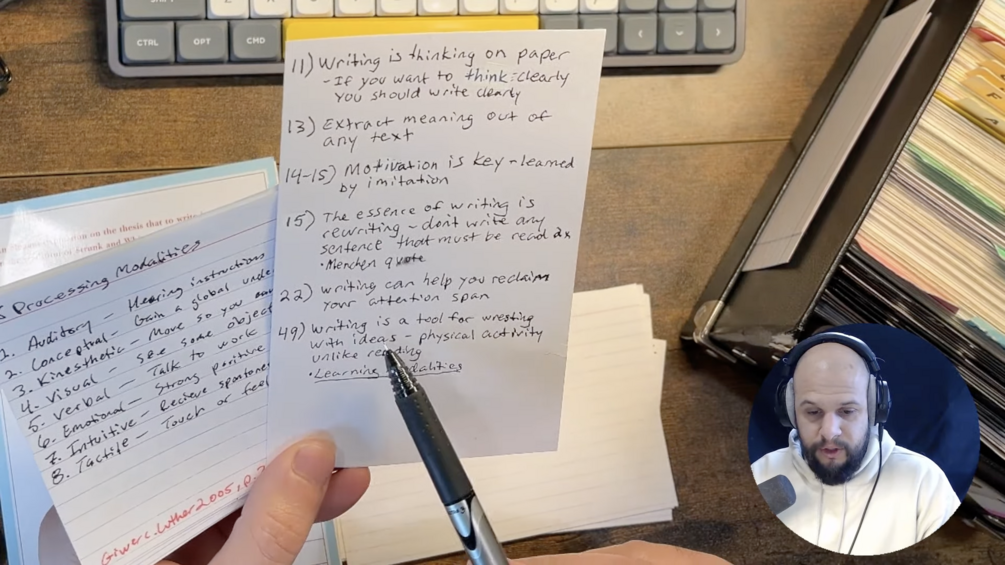 CTRL
OPT
CMD
11) Writing is thinking on paper
- If you want to think clearly
you should write clearly
13) Extract meaning out of
any text
14-15) Motivation is key - learned
by imitation
15) The essence of writing is
rewriting - dont write any
sentence that must be read 2x
• Menchen quote
22) writing can help you reclaim
your attention span
49) Writing is a tool for wresting
with ideas - physical activity
unlike reading
• Learning Modalities
on the thesis that to
Strunk and
Processing Modalities
1. Auditory - Hearing instructions
2. Conceptual - Gain a global
3. Kinesthetic - Move so you
4. Visual - see some object
5. Verbal - Talk to work
6. Emotional - Strong positive
7. Intuitive - Recieve
8. Tactile - Touch or feel
2005,